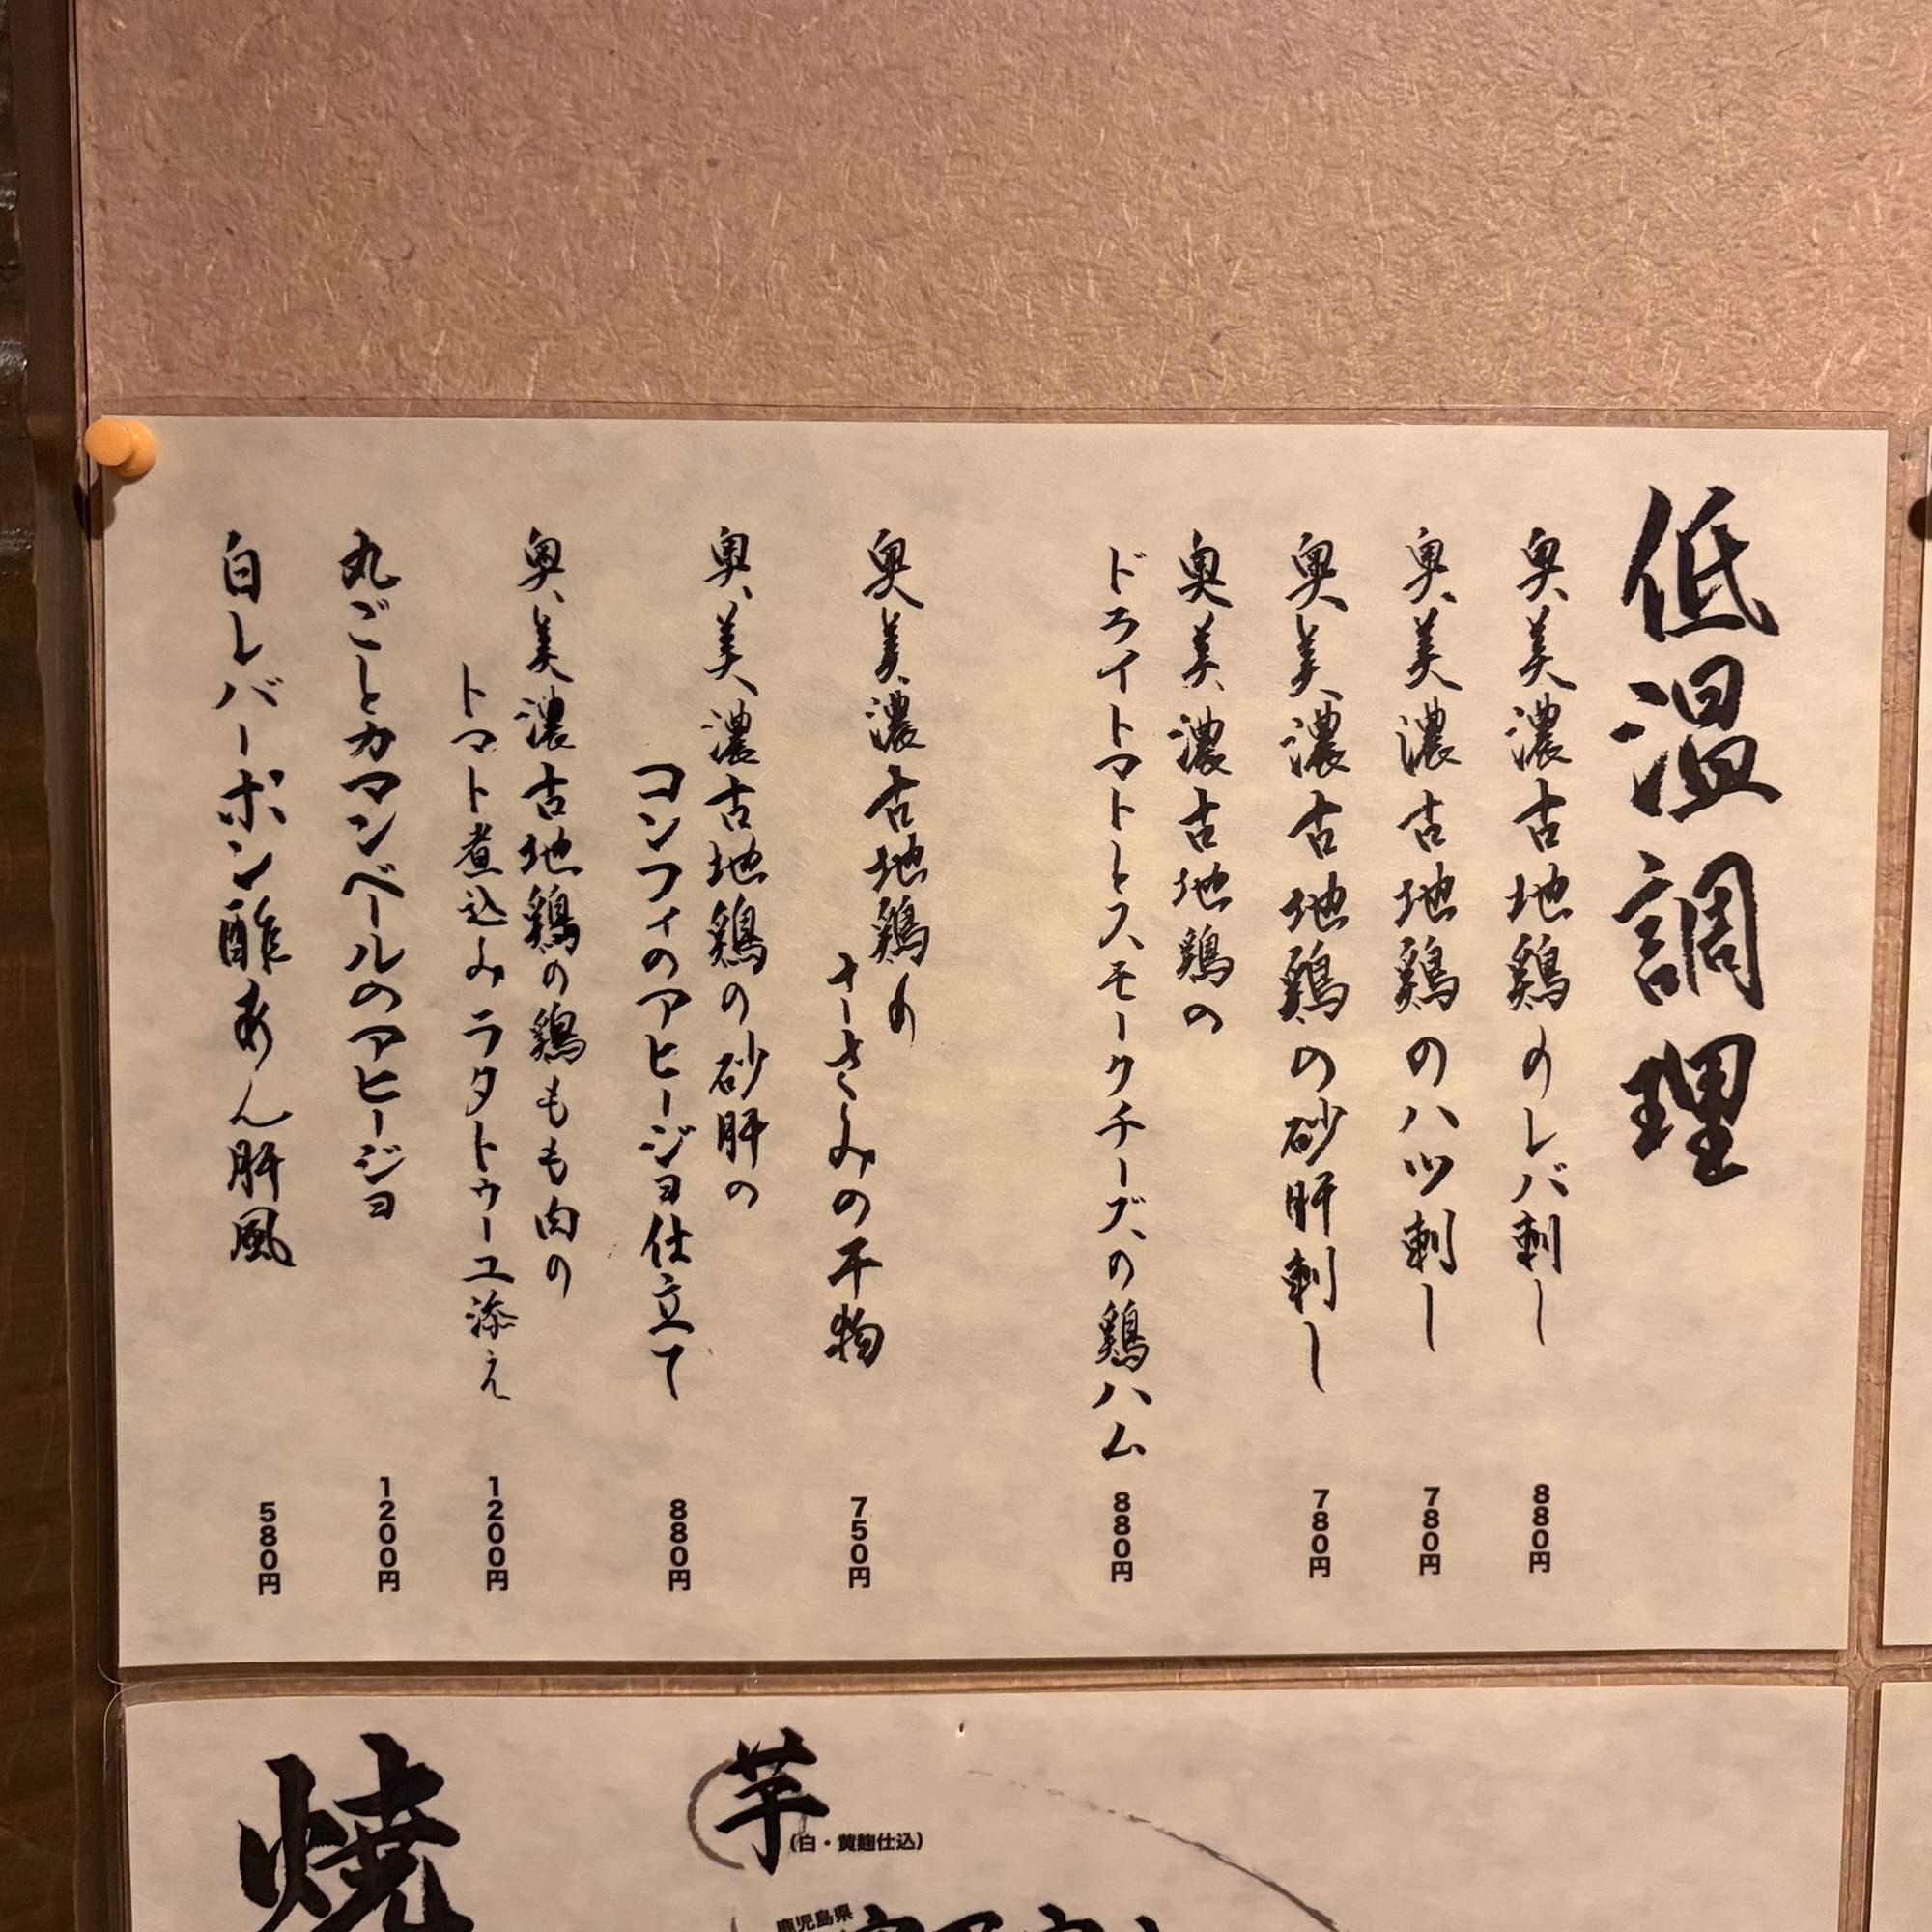 低温調理
奥美濃古地鶏のレバ刺し
880円
奥美濃古地鶏のハツ刺し
780円
奥美濃古地鶏の砂肝刺し
780円
奥美濃古地鶏の
ドライトマトとスモークチーズの鶏ハム
880円
奥美濃古地鶏の
ささみの干物
750円
奥美濃古地鶏の砂肝の
コンフィのアヒージョ仕立て
880円
奥美濃古地鶏の鶏もも肉の
トマト煮込みラタトゥーユ添え
1200円
丸ごとカマンベールのアヒージョ
1200円
白レバーポン酢あん肝風
580円
芋
(白・黄麹仕込)
鹿児島県
焼